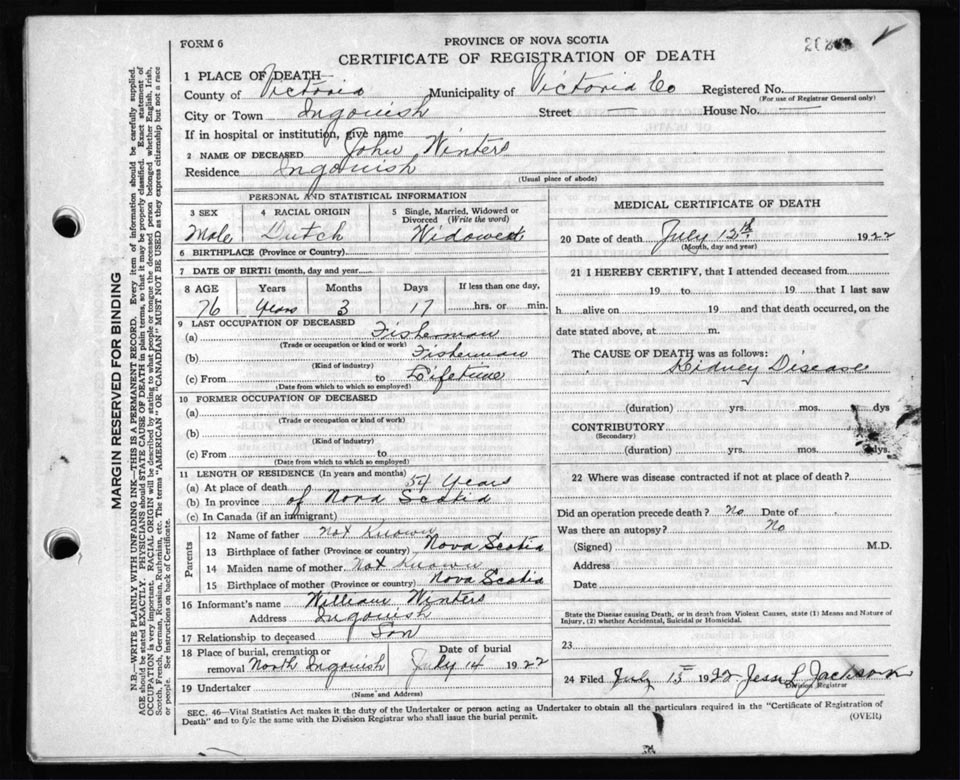 FORM 6
PROVINCE OF NOVA SCOTIA
CERTIFICATE OF REGISTRATION OF DEATH
1 PLACE OF DEATH
County of Victoria Municipality of Victoria Co Registered No.
(For use of Registrar General only)
City or Town Ingonish Street — House No. —
If in hospital or institution, give name
2 NAME OF DECEASED John Winters
Residence Ingonish
(Usual place of abode)
PERSONAL AND STATISTICAL INFORMATION
3 SEX
Male
4 RACIAL ORIGIN
Dutch
5 Single, Married, Widowed or
Divorced (Write the word)
Widowed
6 BIRTHPLACE (Province or County)
7 DATE OF BIRTH (month, day and year)
8 AGE Years Months Days If less than one day,
76 years 3 17 hrs. or min.
9 LAST OCCUPATION OF DECEASED
(a) Fisherman
(Trade or occupation or kind or work)
(b) Fisherman
(Kind of industry)
(c) From to Lifetime
(Date from which to which so employed)
10 FORMER OCCUPATION OF DECEASED
(a)
(Trade or occupation or kind of work)
(b)
(Kind of industry)
(c) From to
(Date from which to which so employed)
11 LENGTH OF RESIDENCE (In years and months)
(a) At place of death 54 years
(b) In province of Nova Scotia
(c) In Canada (if an immigrant)
Parents
12 Name of father Not Known
13 Birthplace of father (Province or country) Nova Scotia
14 Maiden name of mother Not Known
15 Birthplace of mother (Province or country) Nova Scotia
16 Informant's name William Winters
Address Ingonish
17 Relationship to deceased Son
18 Place of burial, cremation or
removal North Ingonish
Date of burial
July 14 1922
19 Undertaker
(Name and Address)
MEDICAL CERTIFICATE OF DEATH
20 Date of death July 12th 1922
(Month, day and year)
21 I HEREBY CERTIFY, that I attended deceased from
19 to 19 that I last saw
h alive on 19 and that death occurred, on the
date stated above, at m.
The CAUSE OF DEATH was as follows:
Kidney Disease
(duration) yrs. mos. dys
CONTRIBUTORY
(Secondary)
(duration) yrs. mos. dys.
22 Where was disease contracted if not at place of death?
Did an operation precede death? No Date of
Was there an autopsy? No
(Signed) M.D.
Address
Date
State the Disease causing Death, or in death from Violent Causes, state (1) Means and Nature of
Injury, (2) whether Accidental, Suicidal or Homicidal.
23
24 Filed July 15 1922 Jackson
Division Registrar
SEC. 46—Vital Statistics Act makes it the duty of the Undertaker or person acting as Undertaker to obtain all the particulars required in the "Certificate of Registration of
Death" and to fyle the same with the Division Registrar who shall issue the burial permit.
(OVER)
MARGIN RESERVED FOR BINDING
N.B.—WRITE PLAINLY WITH UNFADING INK—THIS IS A PERMANENT RECORD. Every item of information should be carefully supplied.
AGE should be stated EXACTLY. PHYSICIANS should STATE CAUSE OF DEATH in plain terms, so that it may be properly classified. Exact statement of
OCCUPATION is very important. RACIAL ORIGIN will be described by stating to what people or tongue the deceased person belonged whether English, Irish,
Scotch, French, German, Russian, Ruthenian, etc. The terms "AMERICAN" OR "CANADIAN" MUST NOT BE USED as they express citizenship but not a race
or people. See instructions on back of Certificate.